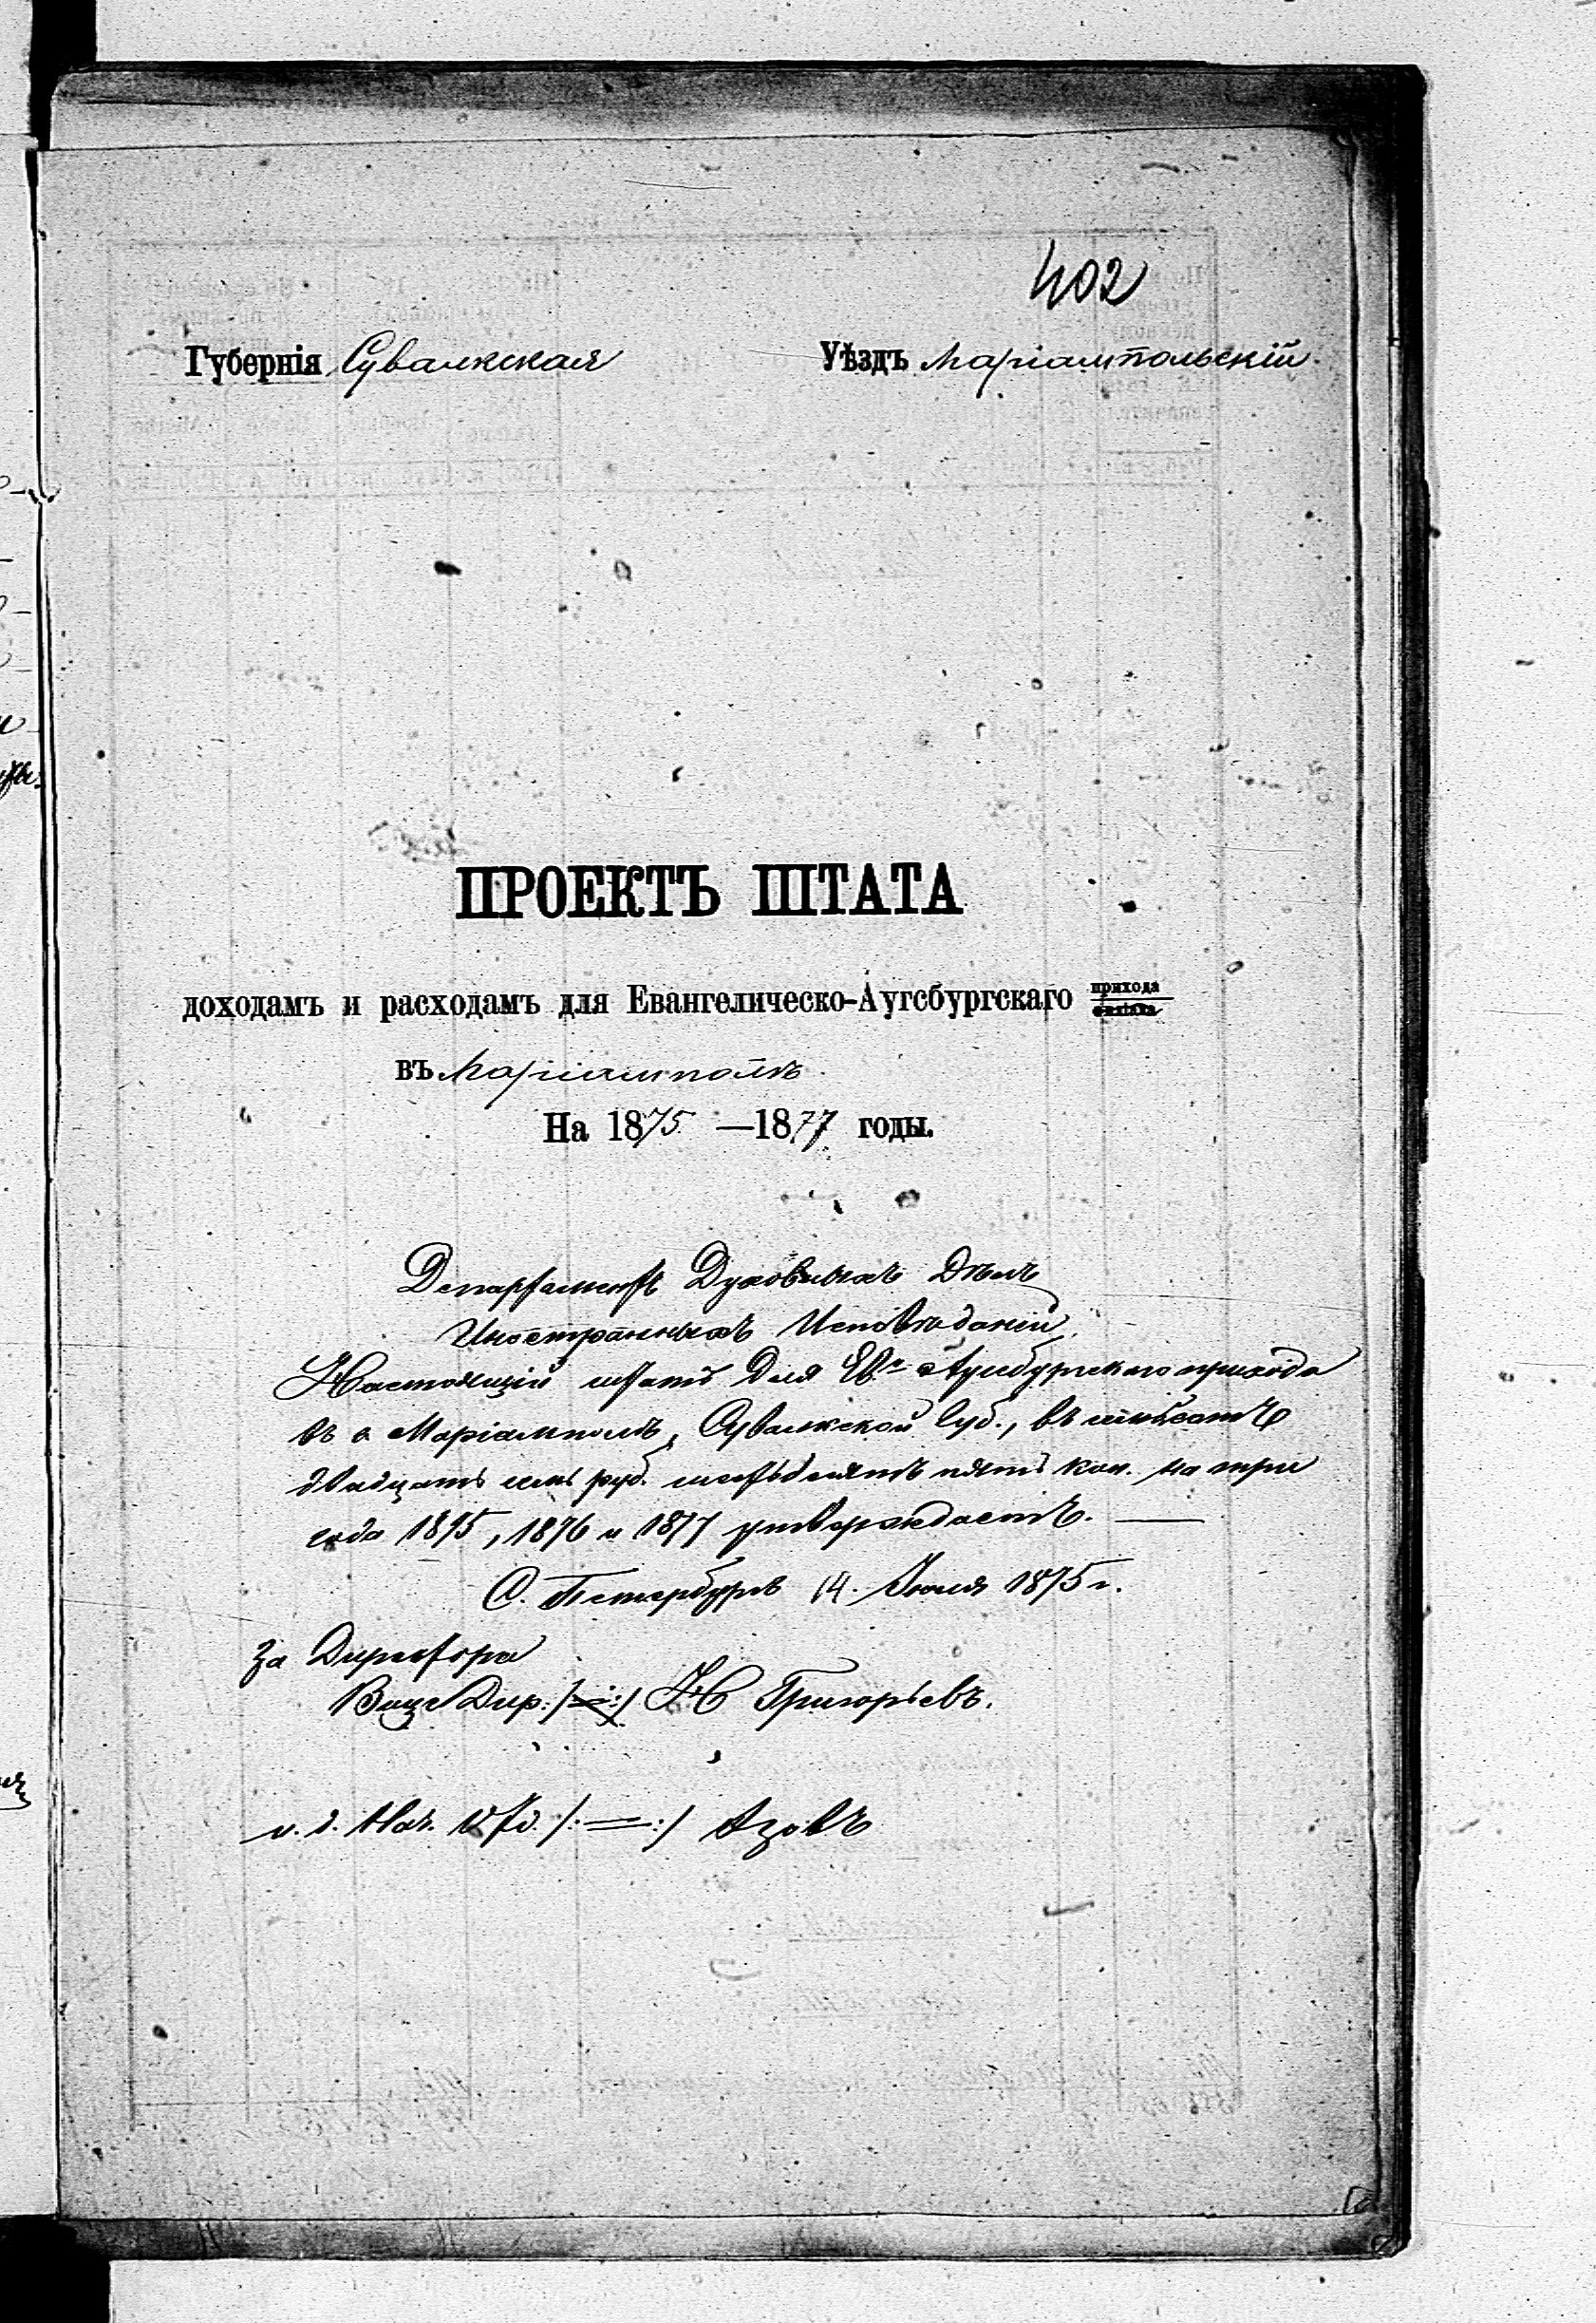 402
Губернія Сувалкская Уѣздъ Маріампольскій
ПРОЕКТЪ ШТАТА
доходамъ и расходамъ для Евангелическо-Аугсбургскаго прихода
филіала
въ Маріамполѣ
На 1875 —1877 годы.
Департаментъ Духовныхъ Дѣлъ
Иностранныхъ Исповѣданій
Настоящій штатъ для Ев. Аугсбургскаго прихода
въ г. Маріамполѣ, Сувалкской Губ., въ шестьсотъ
двадцать семь руб. шестьдесятъ пять коп. на три
года 1875, 1876 и 1877 утверждаетъ.
С. Петербургъ 14. Іюля 1875 г.
За Директора
Вице Дир: /=:/ Н Григорьевъ.
и. д. Нач. Отд. /:=:/ Азовъ